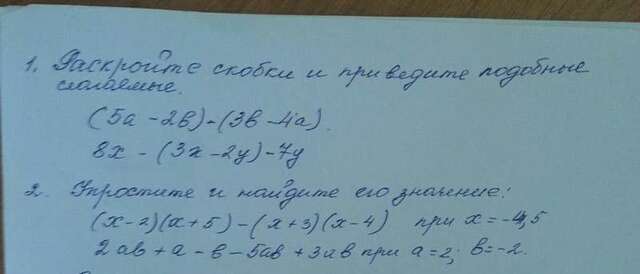 1. Раскройте скобки и приведите подобные
слагаемые.
(5а - 2в) - (3в - 4а).
8х - (3х - 2у) - 7у
2. Упростите и найдите его значение:
(х - 2)(х + 5) - (х + 3)(х - 4) при х = -4,5
2ав + а - в - 5ав + 3ав при а = 2; в = -2.